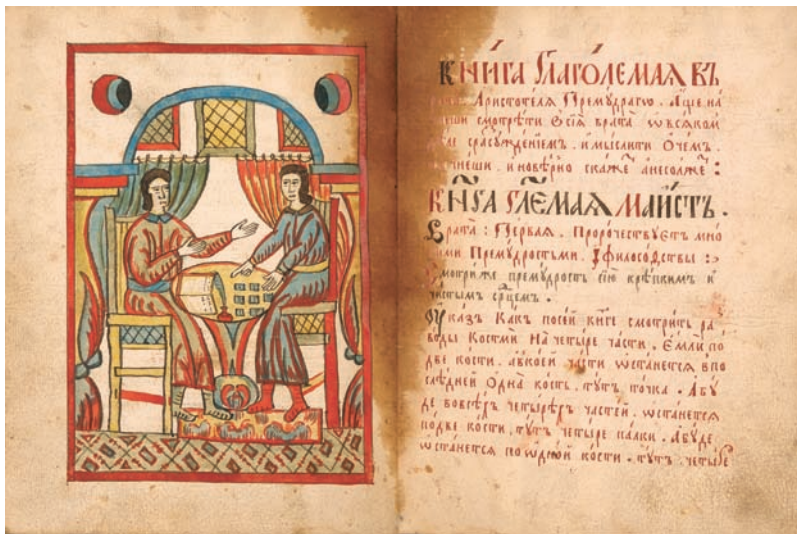 КНИ́ГА ГЛАГО́ЛЕМАЯ ВЪ
Аристотеля Премꙋ́драго . А́ще на
смотрѣ́ти Всі́я врата̀ ѡ҆ всѧ́ком
сразсꙋжде́нїемъ . и҆ мы́слити Ѡ҆ че́мъ .
и҆ новѣ́рно ска́жеⷮ а҆ несо́лжеⷮ :
КНИ́ГА ГЛЕ́МАЯ МАЙСТЪ .
Врата̀ : Пе́рвая . Проро́чествꙋетъ мно
Премꙋ́дростьми . Ꙇ҆ филосо́фствы :
Смотри́же премꙋ́дрость сїю̀ крѣ́пкимъ и҆
чи́стымъ срⷣцемъ .
Ꙋ҆ка́зъ Ка́къ посе́й кни́гѣ смотри́ть ра
во́ды Костмѝ На четы́ре ча́сти . Є҆мли́ по
две ко́сти . а҆вко́ей ча́сти ѡ҆ста́нется впо
слѣ́дней Ѻ҆дна̀ ко́сть . тꙋ́тъ то́чка . А҆бꙋ́
де вовсѣ́хъ четы́рѣхъ часте́й . ѡ҆ста́нется
подве ко́сти . тꙋ́тъ четы́ре па́лки . а҆бꙋ́де
ѡ҆ста́нется поѡ҆дно́й ко́сти . тꙋ́тъ . четы́ре